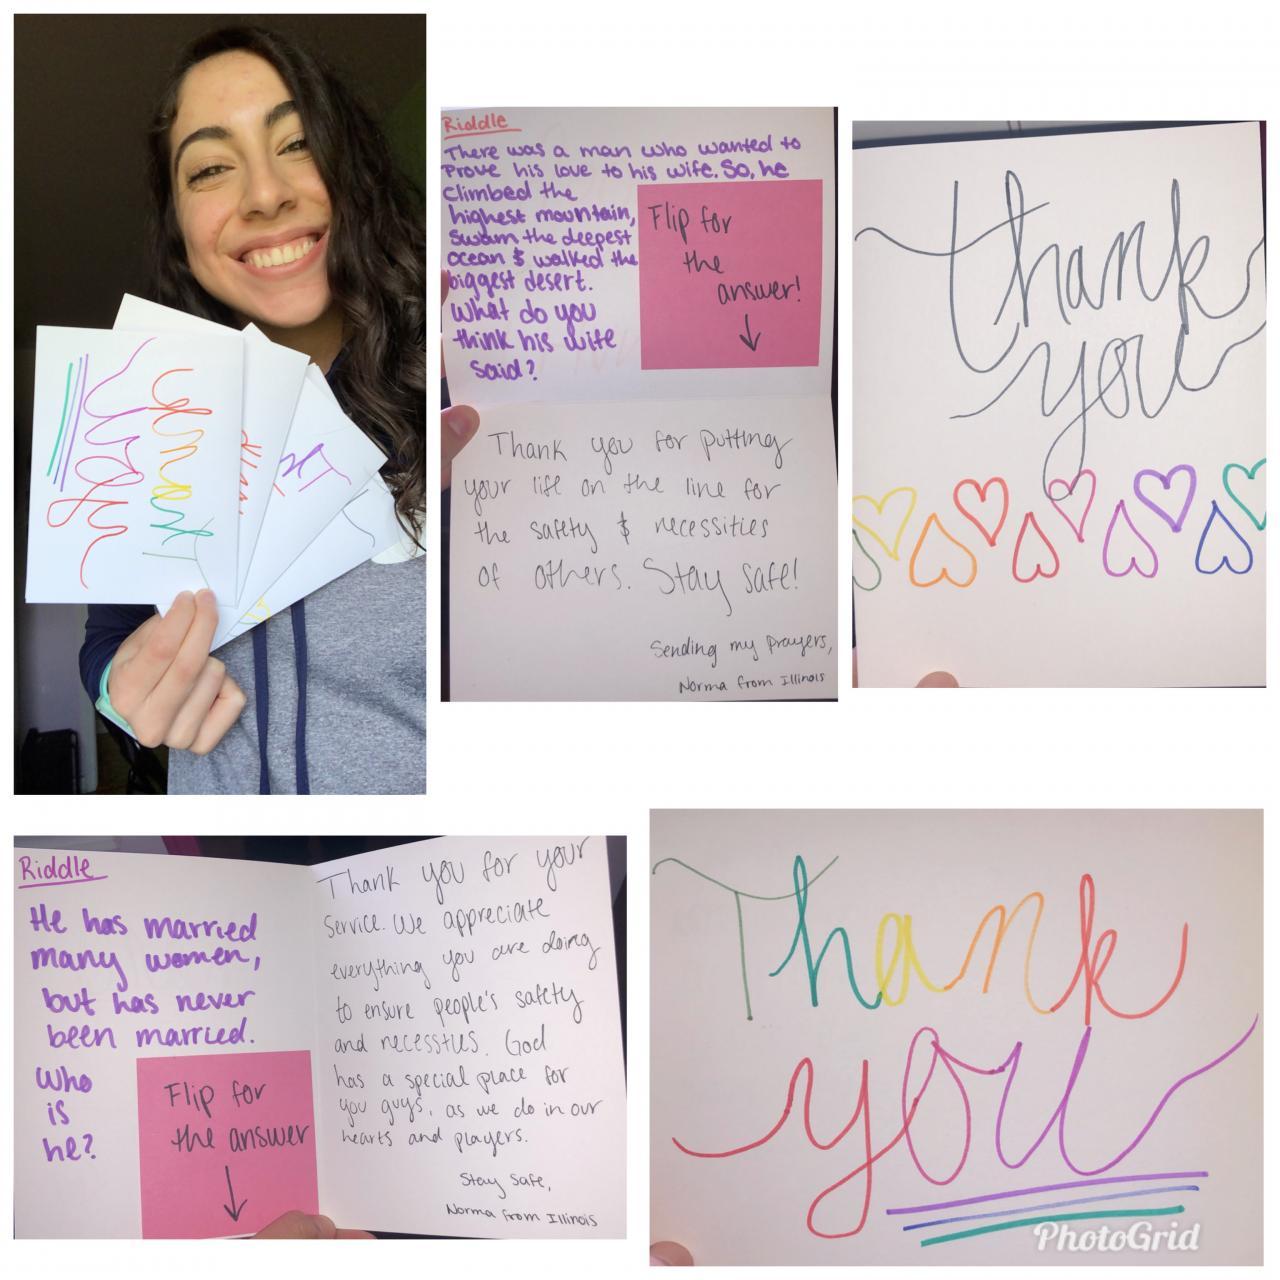 thank
you
Riddle
There was a man who wanted to
Prove his love to his wife. So, he
climbed the
highest mountain,
swam the deepest
ocean & walked the
biggest desert.
What do you
think his wife
said?
Flip for
the
answer!
Thank you for putting
your life on the line for
the safety & necessities
of others. Stay safe!
Sending my Prayers,
Norma from Illinois
thank
you
Riddle
He has married
many women,
but has never
been married.
Who
is
he?
Flip for
the answer
Thank you for your
service. We appreciate
everything you are doing
to ensure people's safety
and
God
has a special place for
you guys, as we do in our
hearts and prayers.
Stay safe,
Norma from Illinois
Thank
you
PhotoGrid